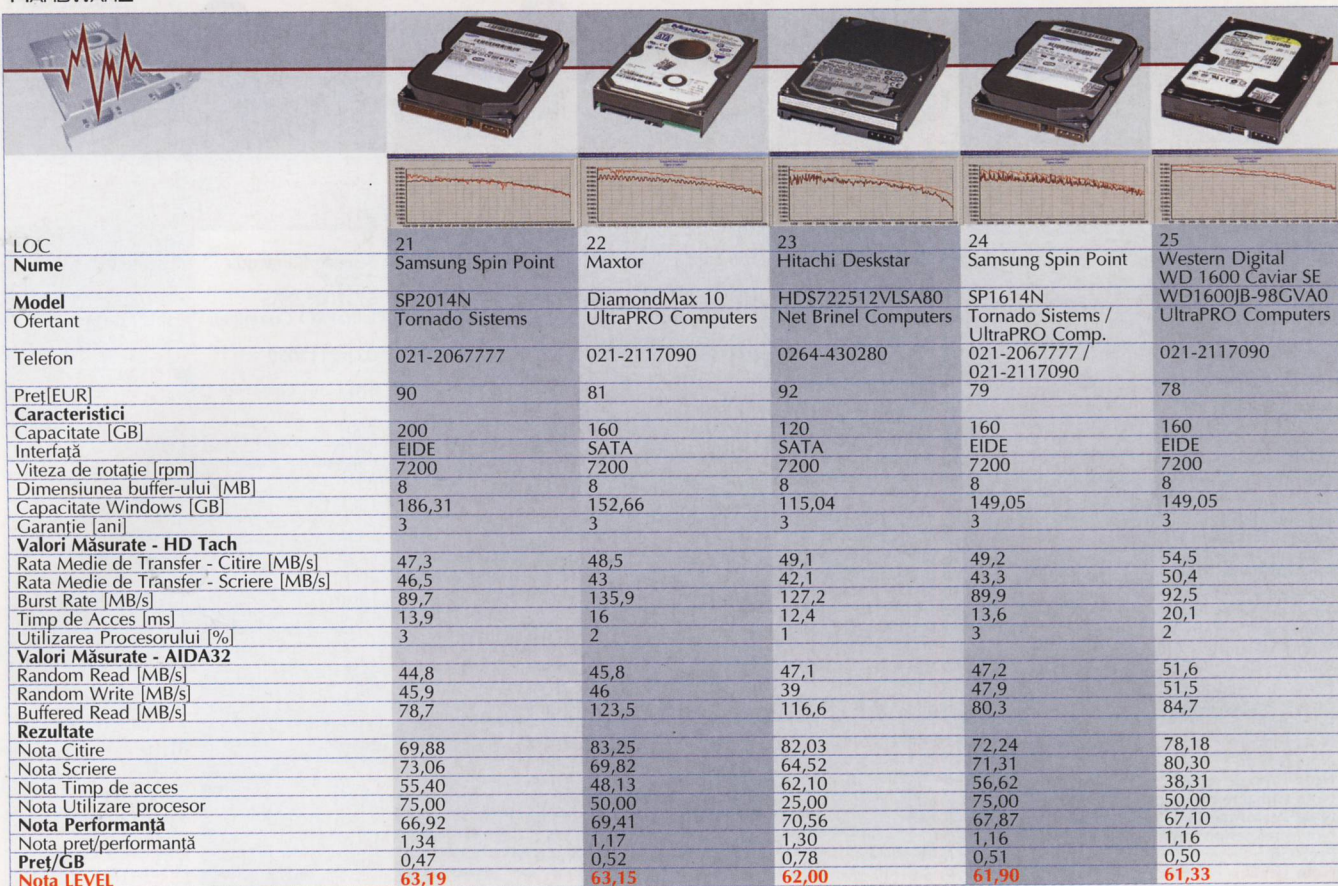 LOC 21 22 23 24 25
Nume Samsung Spin Point Maxtor Hitachi Deskstar Samsung Spin Point Western Digital
WD 1600 Caviar SE
Model SP2014N DiamondMax 10 HDS722512VLSA80 SP1614N WD1600JB-98GVA0
Ofertant Tornado Sistems UltraPRO Computers Net Brinel Computers Tornado Sistems / UltraPRO Computers
UltraPRO Comp.
Telefon 021-2067777 021-2117090 0264-430280 021-2067777 / 021-2117090
021-2117090
Preț[EUR] 90 81 92 79 78
Caracteristici
Capacitate [GB] 200 160 120 160 160
Interfață EIDE SATA SATA EIDE EIDE
Viteza de rotație [rpm] 7200 7200 7200 7200 7200
Dimensiunea buffer-ului [MB] 8 8 8 8 8
Capacitate Windows [GB] 186,31 152,66 115,04 149,05 149,05
Garanție [ani] 3 3 3 3 3
Valori Măsurate - HD Tach
Rata Medie de Transfer - Citire [MB/s] 47,3 48,5 49,1 49,2 54,5
Rata Medie de Transfer - Scriere [MB/s] 46,5 43 42,1 43,3 50,4
Burst Rate [MB/s] 89,7 135,9 127,2 89,9 92,5
Timp de Acces [ms] 13,9 16 12,4 13,6 20,1
Utilizarea Procesorului [%] 3 2 1 3 2
Valori Măsurate - AIDA32
Random Read [MB/s] 44,8 45,8 47,1 47,2 51,6
Random Write [MB/s] 45,9 46 39 47,9 51,5
Buffered Read [MB/s] 78,7 123,5 116,6 80,3 84,7
Rezultate
Nota Citire 69,88 83,25 82,03 72,24 78,18
Nota Scriere 73,06 69,82 64,52 71,31 80,30
Nota Timp de acces 55,40 48,13 62,10 56,62 38,31
Nota Utilizare procesor 75,00 50,00 25,00 75,00 50,00
Nota Performanță 66,92 69,41 70,56 67,87 67,10
Nota preț/performanță 1,34 1,17 1,30 1,16 1,16
Preț/GB 0,47 0,52 0,78 0,51 0,50
Nota LEVEL 63,19 63,15 62,00 61,90 61,33